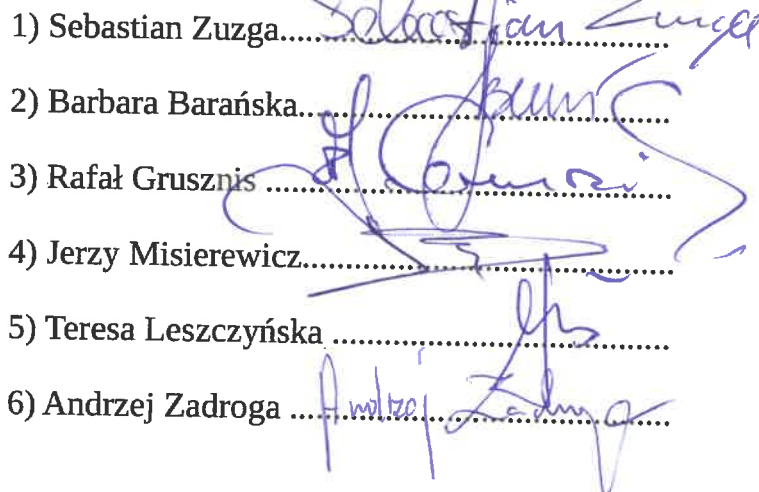 1) Sebastian Zuzga.......Sebastian Zuzga
2) Barbara Barańska.......
3) Rafał Grusznis .......
4) Jerzy Misierewicz.......
5) Teresa Leszczyńska .......
6) Andrzej Zadroga .......Andrzej Zadroga